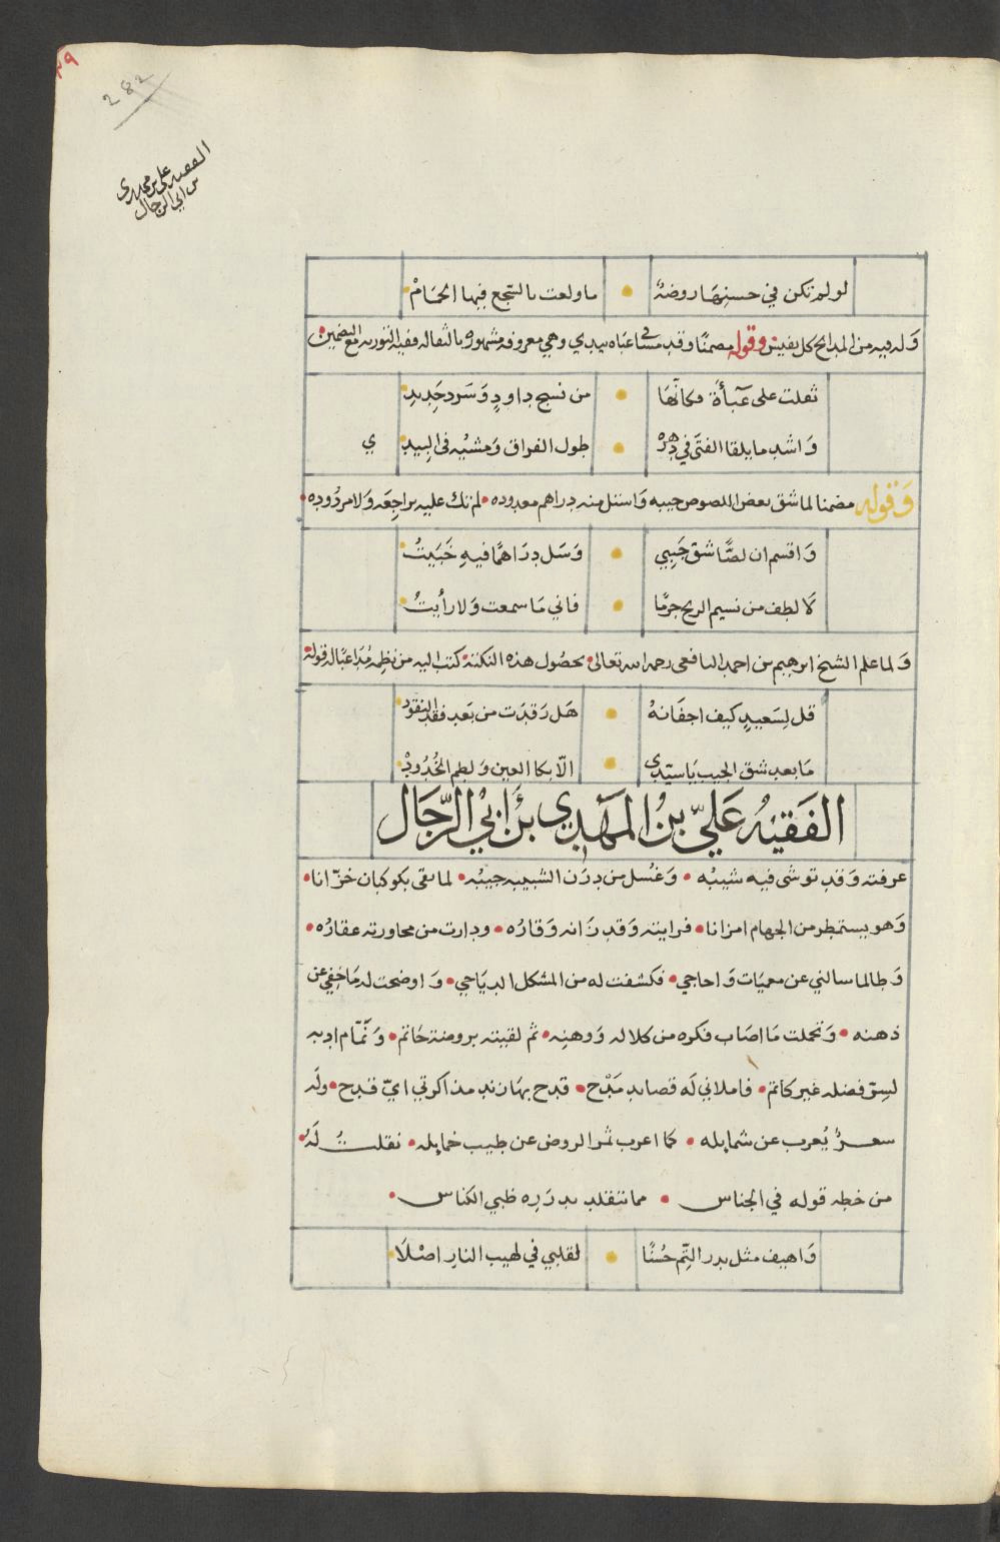 ٣٩
282
الفقيه علي بن مهدي
بن ابي الرجال
لو لم تكن في حسنها روضةً • ما ولعت بالسجع فيها الحمامْ
وله فيه من المدايح كل نفيس وقوله مضمنًا وقد مشا في عباه بيدي وهي معروفه مشهوره بالثقاله ففيه التوريه مع التضمين
ثقلت على عبأة فكانها • من نسج داودٍ وسرد حديدِ
واشد ما يلقا الفتى في دهره • طول الفراق ومشيه في البيدِ ي
وقوله مضمنا لما شق بعض اللصوص جيبه واستل منه دراهم معدوده • لم تك عليه براجعه ولا مردوده •
واقسم ان لصًا شق جيبي • وسل دراهمًا فيه خبيتُ
لالطف من نسيم الريح جرمًا • فاني ما سمعت ولا رأيتُ
ولما علم الشيخ ابرهيم بن احمد اليافعي رحمه الله تعالى بحصول هذه النكتة • كتب اليه من نظمه مداعبًا له قوله
قل لسعيدٍ كيف اجفانهُ • هل رقدت من بعد فقد النقود
ما بعد شق الجيب يا سيدي • الّا بكا العين ولطم الخدودْ
الفقيه علي بن المهدي بن ابي الرجال
عرفته وقد توشى فيه شيبُه • وغسل من درن الشبيبه جيبُه • لما بقى بكوكبان خزانا •
وهو يستمطر من الجهام امزانا • فرايته وقد زانه وقاره • ودارت من محاورته عقاره •
وطالما سالني عن معميات واحاجي • فكشفت له من المشكل الدياجي • واوضحت له ما خفي عن
ذهنه • وتحملت ما اصاب فكره من كلاله ووهنه • ثم لقيته بروضة حاتم • ونمّام ادبه
لسرّ فضله غير كاتم • فاملاني له قصايد مدّح • قدح بها زند مذاكرتي ايّ قدح • وله
سعرٌ يُعرب عن شمايله • كما اعرب نمر الروض عن طيب خمايله • نقلتُ لهُ •
من خطه قوله في الجناس • مما تتقلد بدرره ظبي الكناس •
واهيف مثل بدر التِّم حُسنًا • لقلبي في لهيب النار اصْلَا